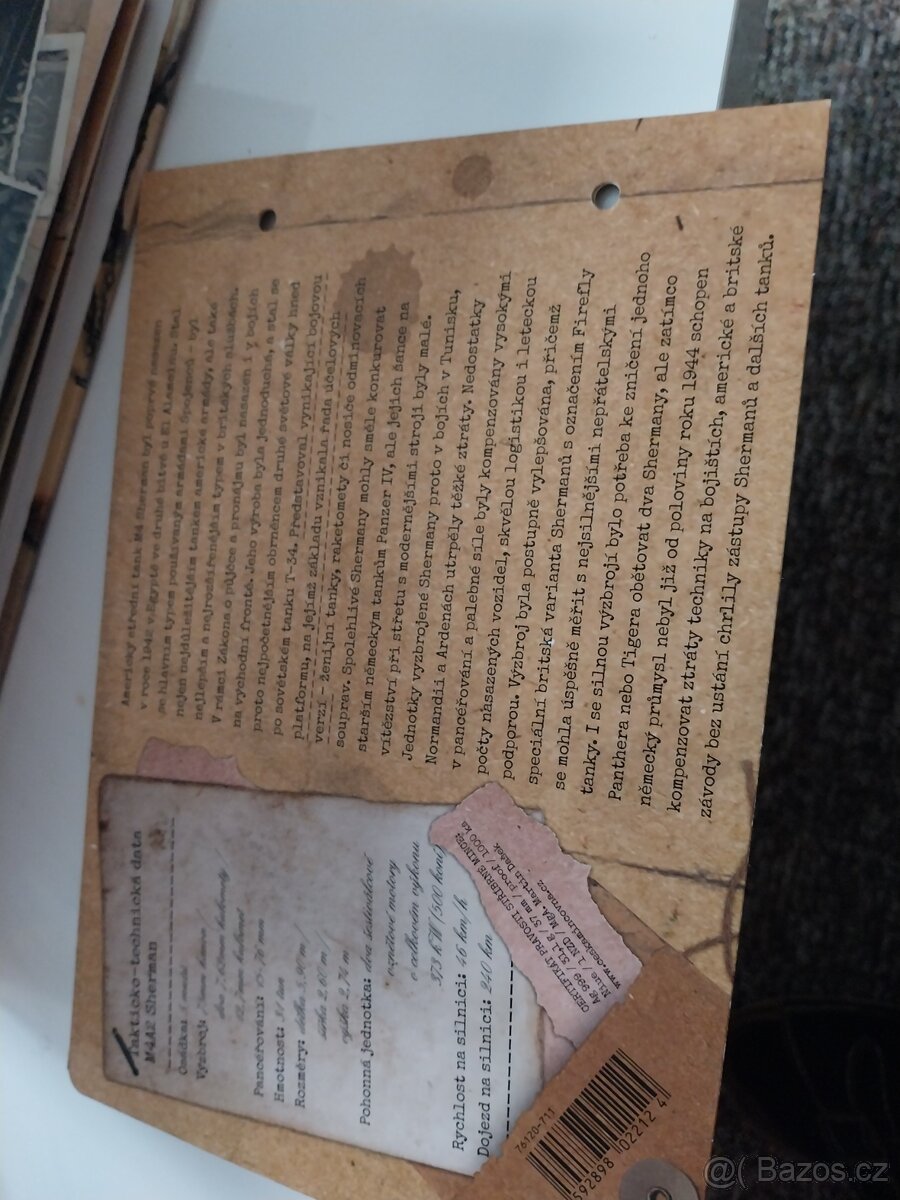 Americký střední tank M4 Sherman byl poprvé nasazen
v roce 1942 v Egyptě ve druhé bitvě u El Alameinu. Stal
se hlavním typem používaným armádami Spojenců – byl
nejen nejdůležitějším tankem americké armády, ale také
nejlepším a nejrozšířenějším typem v britských službách.
V rámci Zákona o půjčce a pronájmu byl nasazen i v bojích
na východní frontě. Jeho výroba byla jednoduchá, a stal se
proto nejpočetnějším obrněncem druhé světové války hned
po sovětském tanku T-34. Představoval vynikající bojovou
platformu, na jejímž základu vznikala řada účelových
verzí – ženijní tanky, raketomety či nosiče odminovacích
souprav. Spolehlivé Shermany mohly směle konkurovat
starším německým tankům Panzer IV, ale jejich šance na
vítězství při střetu s modernějšími stroji byly malé.
Jednotky vyzbrojené Shermany proto v bojích v Tunisku,
Normandii a Ardenách utrpěly těžké ztráty. Nedostatky
v pancéřování a palebné síle byly kompenzovány vysokými
počty nasazených vozidel, skvělou logistikou i leteckou
podporou. Výzbroj byla postupně vylepšována, přičemž
speciální britská varianta Shermanů s označením Firefly
se mohla úspěšně měřit s nejsilnějšími nepřátelskými
tanky. I se silnou výzbrojí bylo potřeba ke zničení jednoho
Panthera nebo Tigera obětovat dva Shermany, ale zatímco
německý průmysl nebyl již od poloviny roku 1944 schopen
kompenzovat ztráty techniky na bojištích, americké a britské
závody bez ustání chrlily zástupy Shermanů a dalších tanků.
Takticko-technická data
M4A2 Sherman
Osádka: 5 mužů
Výzbroj:
Pancéřování: mm
Hmotnost: 31 tun
Rozměry: délka
šířka
výška 2,74 m
Pohonná jednotka: dva šestiválcové
vznětové motory
o celkovém výkonu
373 kW (500 koní)
Rychlost na silnici: 46 km/h
Dojezd na silnici: 240 km
CERTIFIKÁT PRAVOSTI STŘÍBRNÉ MINCE:
Ag 999 / 31,1 g / 37 mm / proof / 1000 ks
Niue / 1 NZD / MgA. Martin Dašek
www.ceskamincovna.cz
76120-711
592898 02212 4
@( Bazos.cz